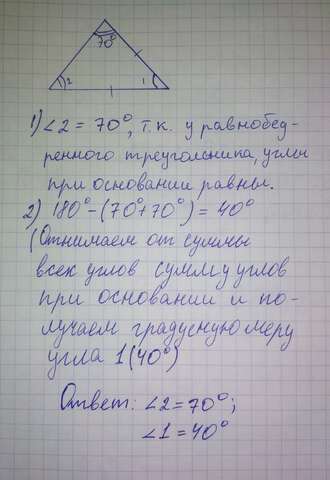 70°
2
1
1) ∠2 = 70°, т.к. у равнобед-
ренного треугольника, углы
при основании равны.
2) 180° - (70°+70°) = 40°
(Отнимаем от суммы
всех углов сумму углов
при основании и по-
лучаем градусную меру
угла 1 (40°)
Ответ: ∠2 = 70°;
∠1 = 40°